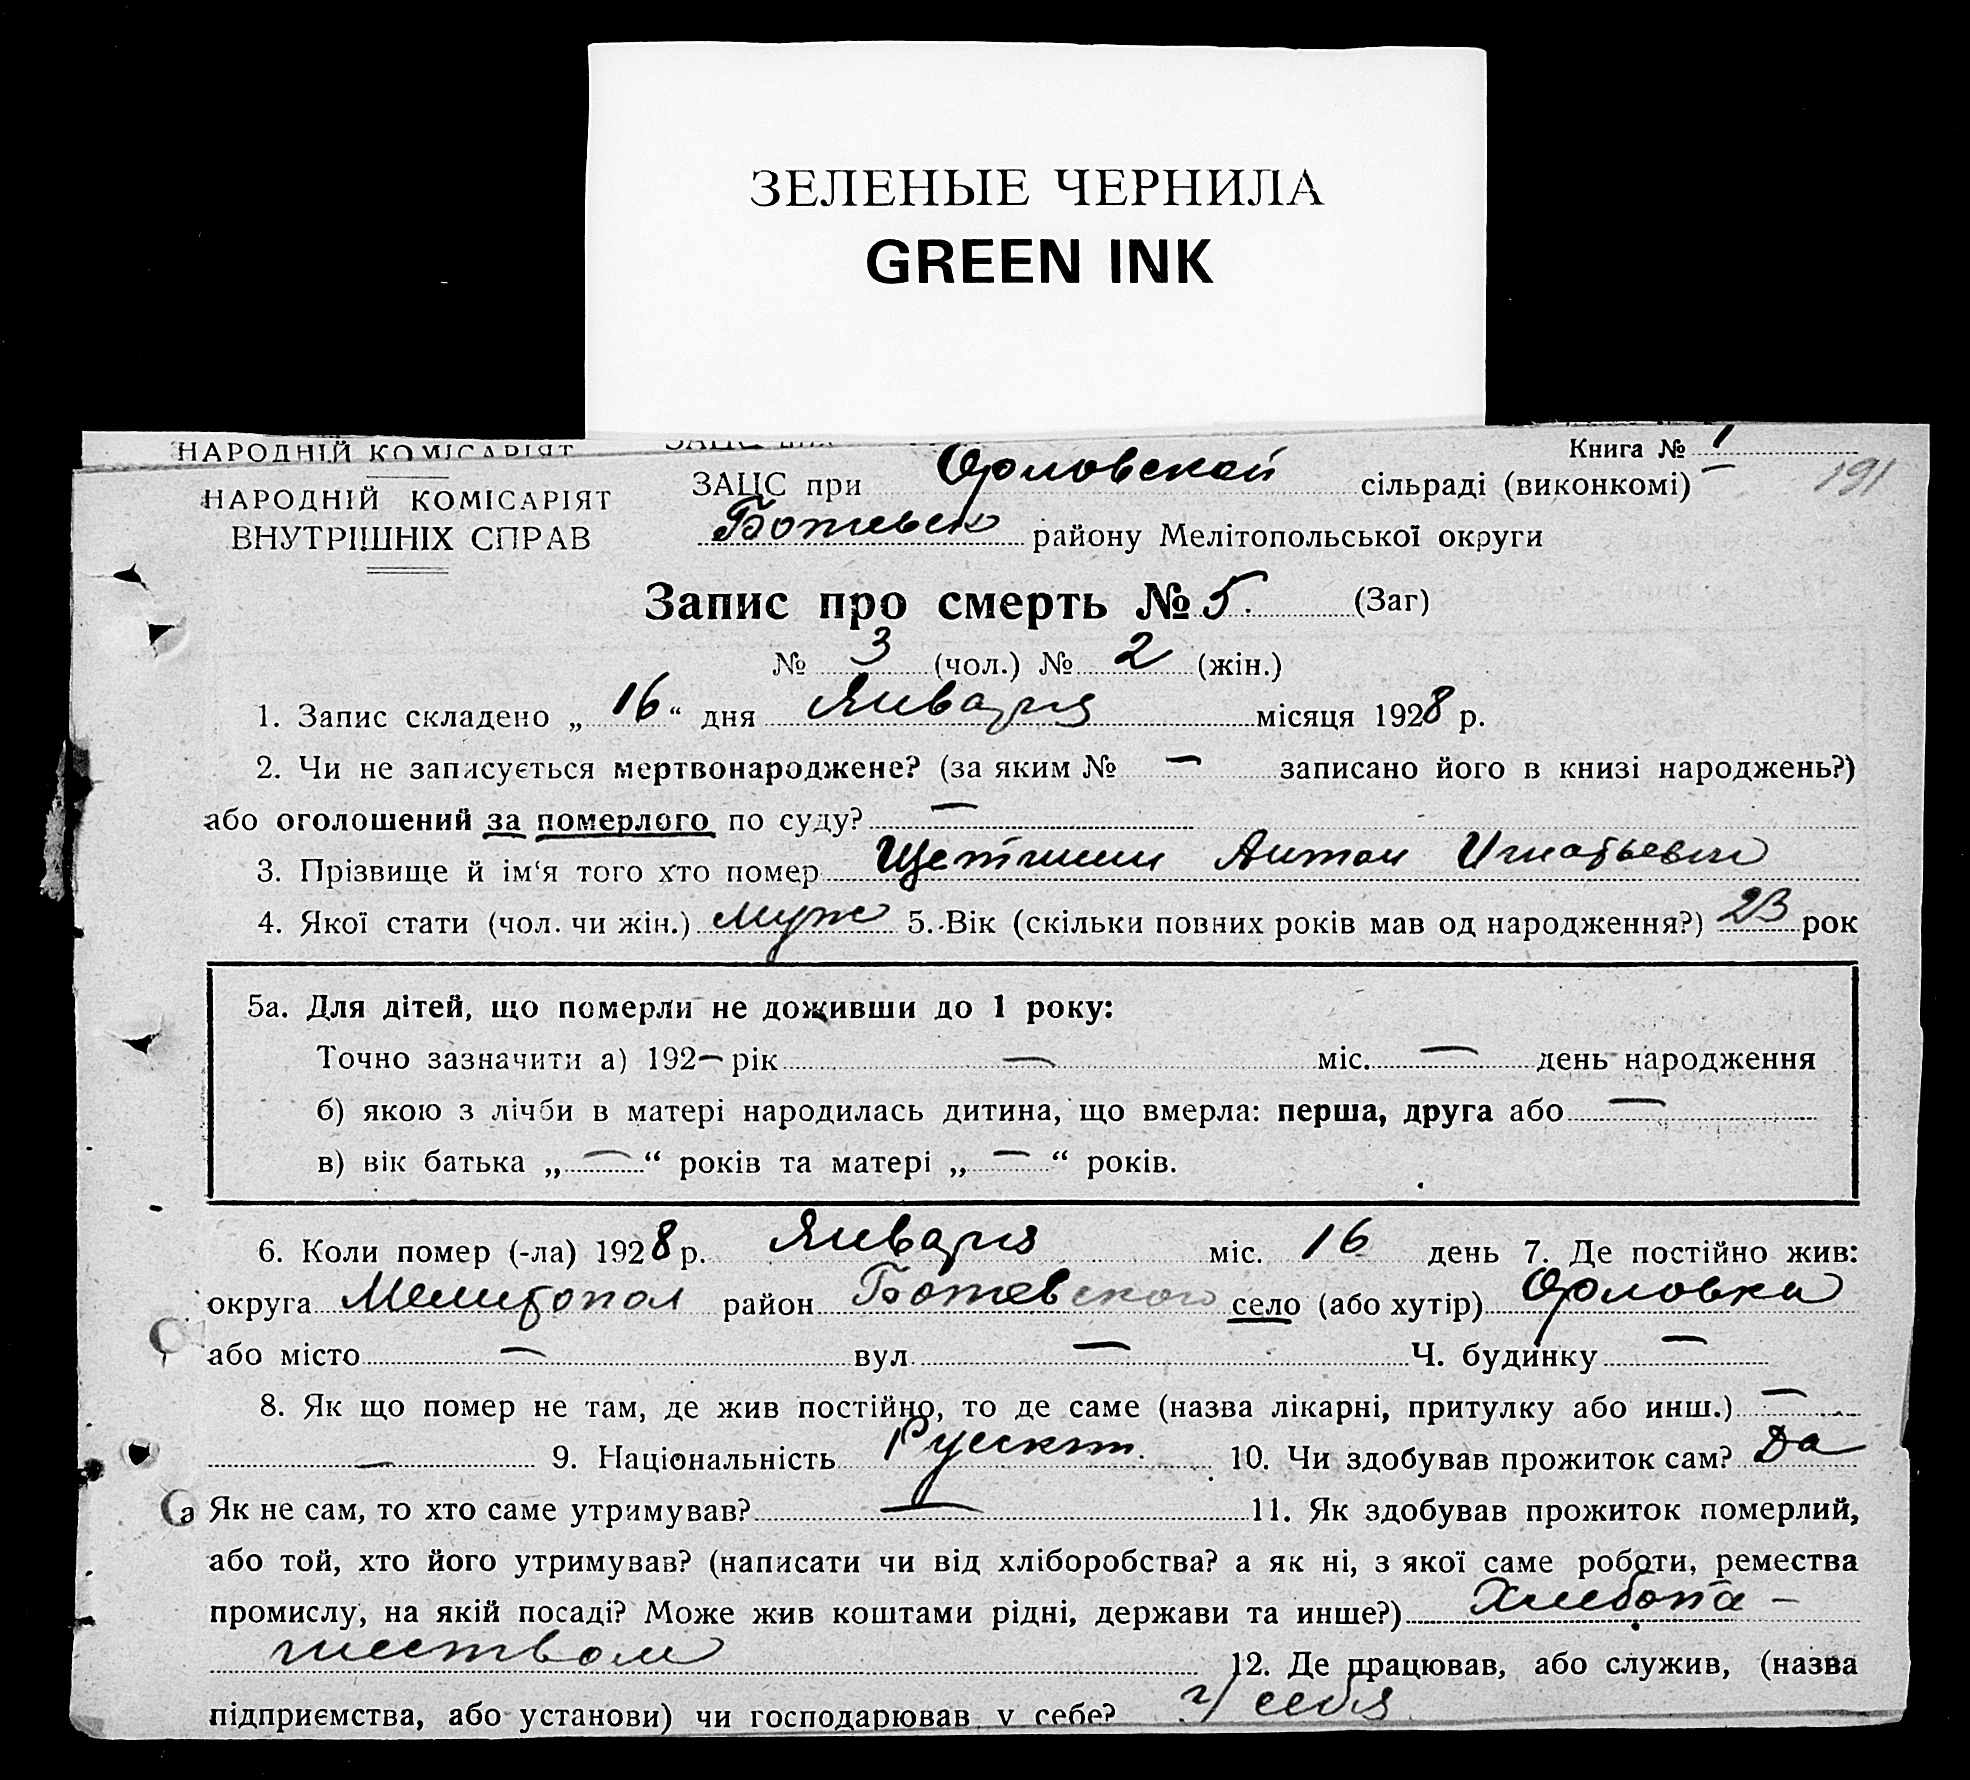 ЗЕЛЕНЫЕ ЧЕРНИЛА
GREEN INK
НАРОДНІЙ КОМІСАРІЯТ
Книга № 1
191
НАРОДНІЙ КОМІСАРІЯТ
ВНУТРІШНІХ СПРАВ
ЗАЦС при Орловской сільраді (виконкомі)
Ботьевск району Мелітопольської округи
Запис про смерть № 5. (Заг)
№ 3 (чол.) № 2 (жін.)
1. Запис складено „ 16 “ дня Января місяця 1928 р.
2. Чи не записується мертвонароджене? (за яким № — записано його в книзі народжень?)
або оголошений за померлого по суду? —
3. Прізвище й ім‘я того хто помер Щетинин Антон Игнатьевич
4. Якої стати (чол. чи жін.) муж 5. Вік (скільки повних років мав од народження?) 23 рок
5а. Для дітей, що померли не доживши до 1 року:
Точно зазначити а) 192— рік — міс. — день народження
б) якою з лічби в матері народилась дитина, що вмерла: перша, друга або —
в) вік батька „ — “ років та матері „ — “ років.
6. Коли помер (-ла) 1928 р. Января міс. 16 день 7. Де постійно жив:
округа Мелитопол район Ботевского село (або хутір) Орловка
або місто — вул. — Ч. будинку —
8. Як що помер не там, де жив постійно, то де саме (назва лікарні, притулку або инш.) —
— 9. Національність 10. Чи здобував прожиток сам? Да
Як не сам, то хто саме утримував? — 11. Як здобував прожиток померлий,
або той, хто його утримував? (написати чи від хліборобства? а як ні, з якої саме роботи, ремества
промислу, на якій посаді? Може жив коштами рідні, держави та инше?) Хлебопа-
шеством 12. Де працював, або служив, (назва
підприємства, або установи) чи господарював у себе? у себя